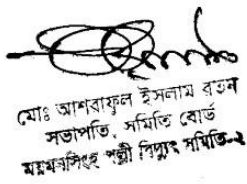 মোঃ আশরাফুল ইসলাম রতন
সভাপতি, সমিতি বোর্ড
ময়মনসিংহ পল্লী বিদ্যুৎ সমিতি-২